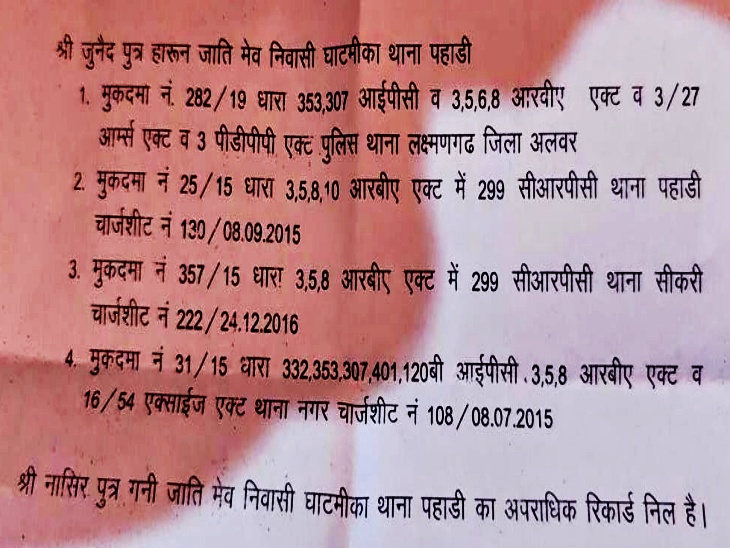 श्री जुनैद पुत्र हारून जाति मेव निवासी घाटमीका थाना पहाडी
1. मुकदमा नं. 282/19 धारा 353,307 आईपीसी व 3,5,6,8 आरवीए एक्ट व 3/27
आर्म्स एक्ट व 3 पीडीपीपी एक्ट पुलिस थाना लक्ष्मणगढ जिला अलवर
2. मुकदमा नं 25/15 धारा 3,5,8,10 आरबीए एक्ट में 299 सीआरपीसी थाना पहाडी
चार्जशीट नं 130/08.09.2015
3. मुकदमा नं 357/15 धारा 3,5,8 आरबीए एक्ट में 299 सीआरपीसी थाना सीकरी
चार्जशीट नं 222/24.12.2016
4. मुकदमा नं 31/15 धारा 332,353,307,401,120बी आईपीसी .3,5,8 आरबीए एक्ट व
16/54 एक्साईज एक्ट थाना नगर चार्जशीट नं 108/08.07.2015
श्री नासिर पुत्र गनी जाति मेव निवासी घाटमीका थाना पहाडी का अपराधिक रिकार्ड निल है।